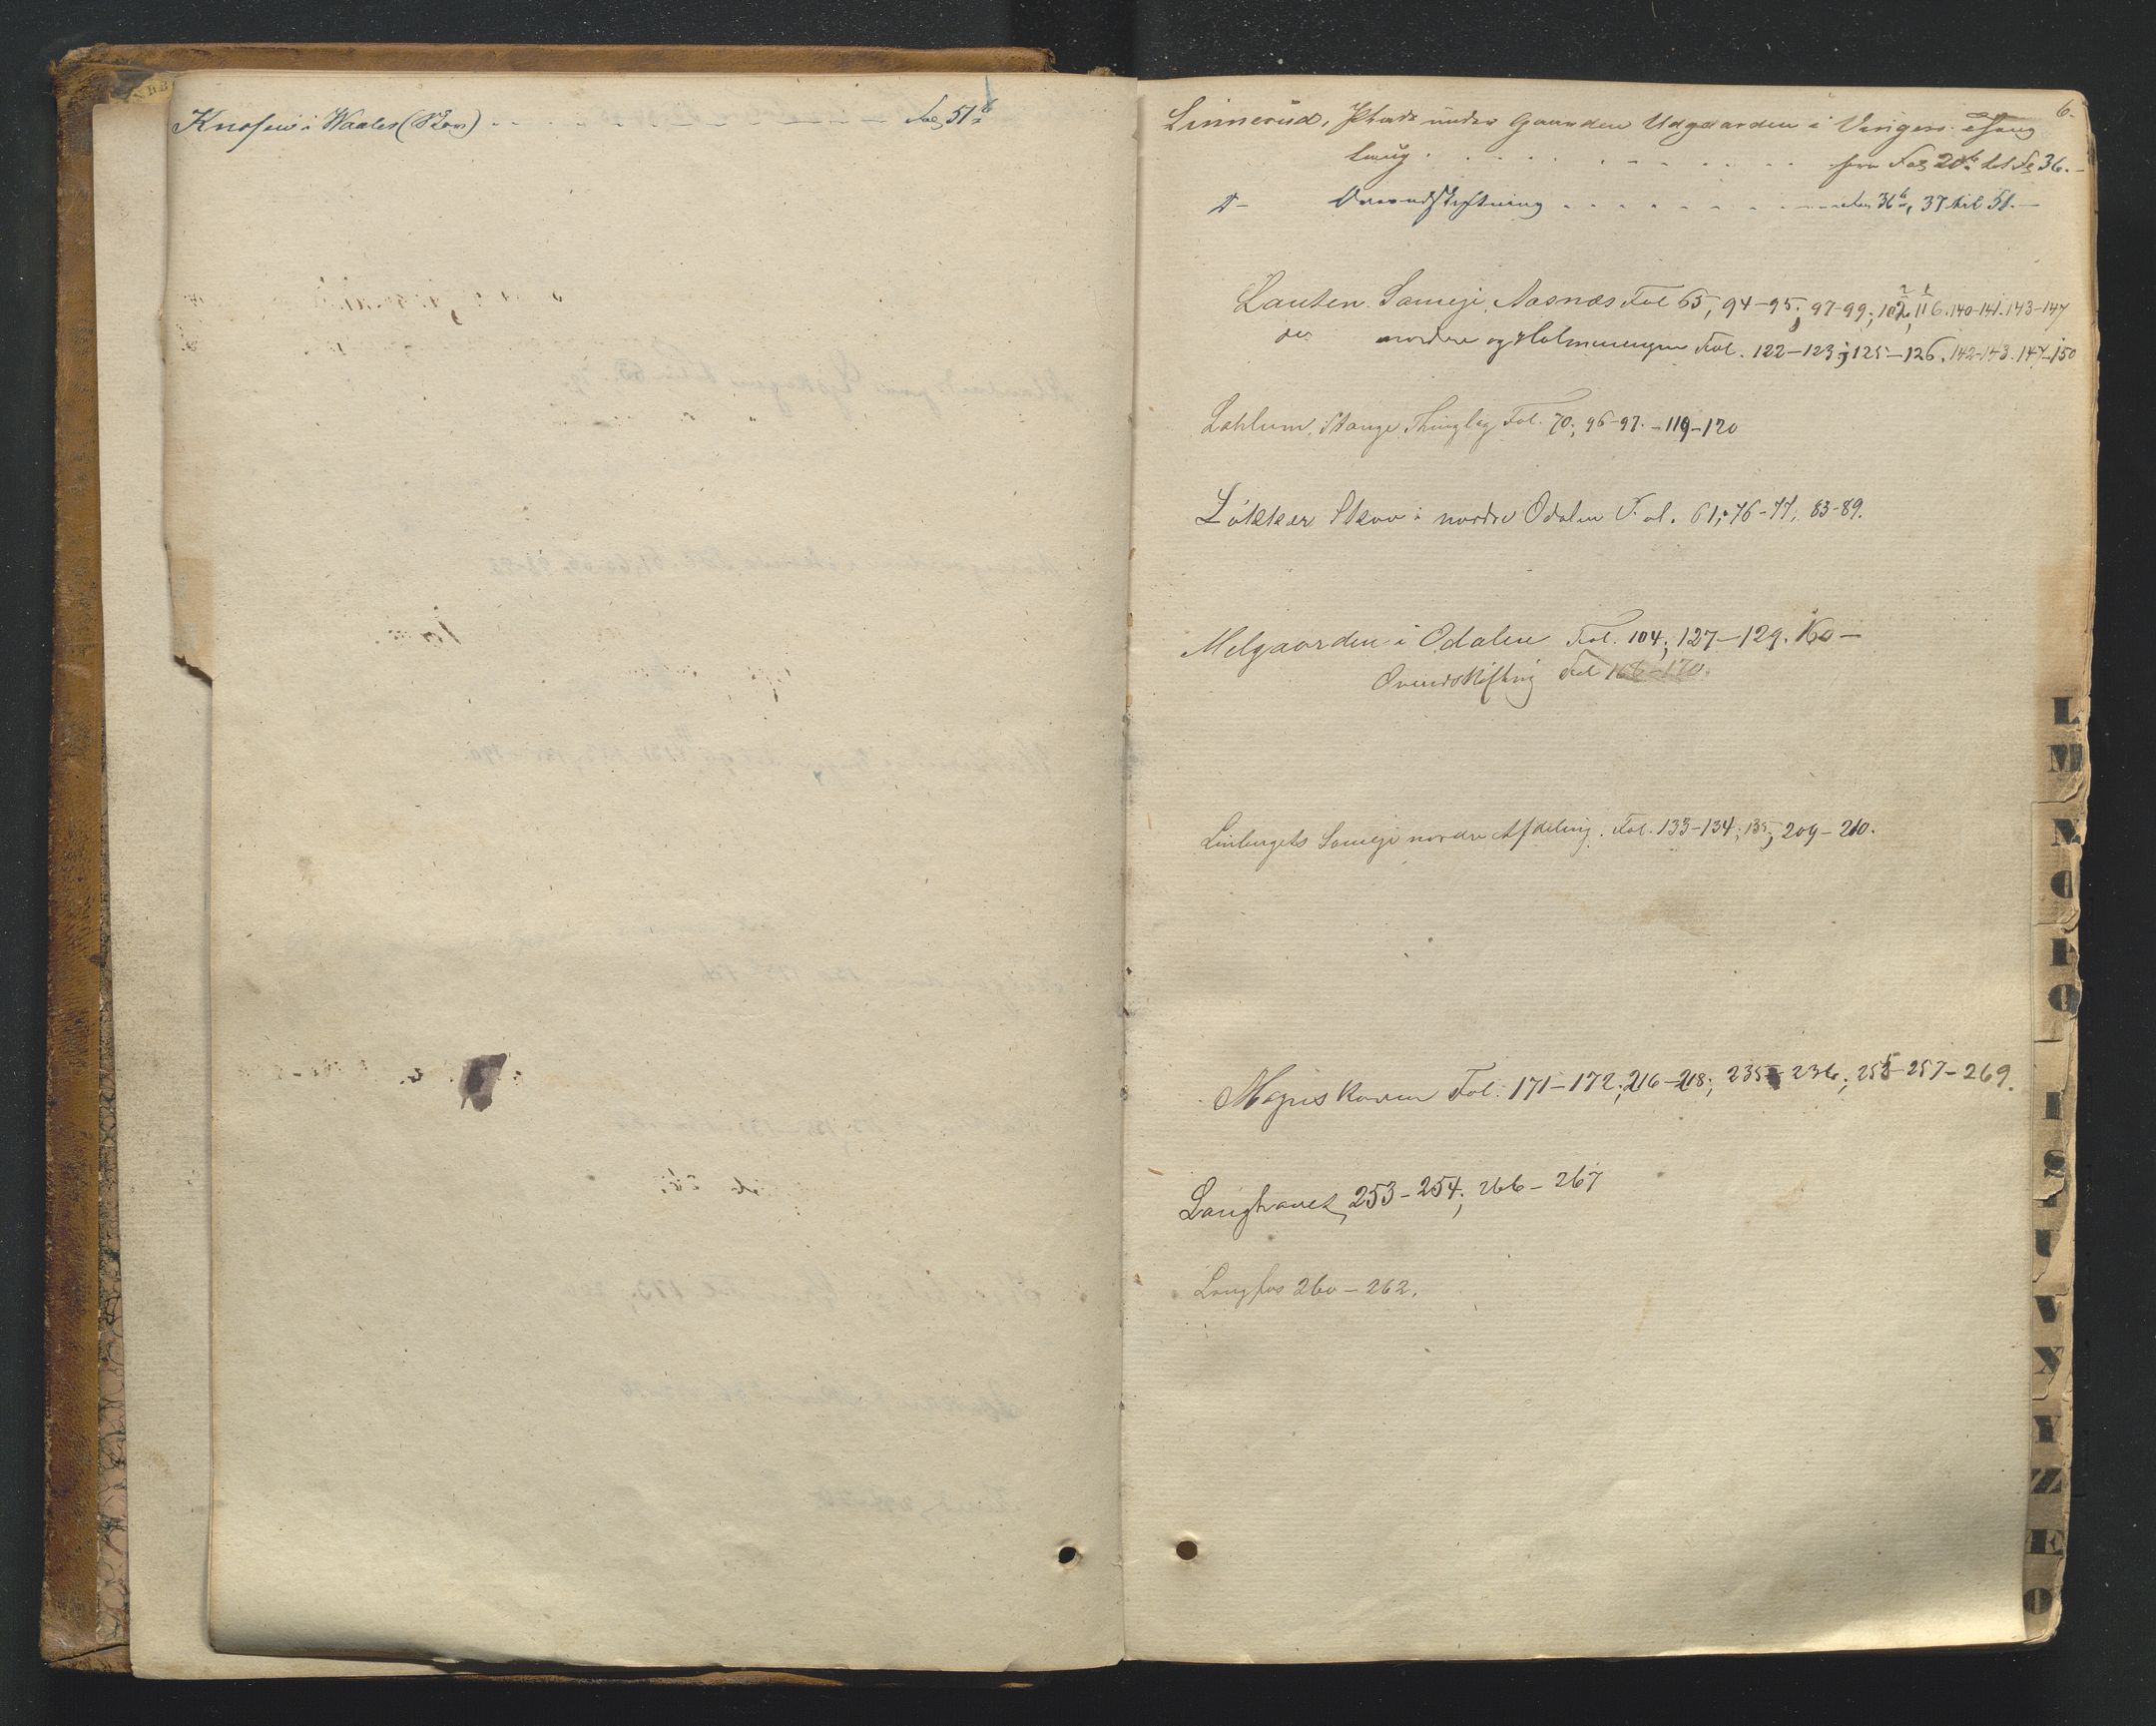 Knosen i Waaler (Skov) - - - - - - - - - - Fol 51b
6.
Linnerud, Plads under Gaarden Udgaarden i Vingers Thing
laug . . . . . . . . . . fra Fol 20b til Fol 36. -
D- Omudskiftning . . . . . . . . . . Fol 36b, 37 til 51. -
Lauten Sameje, Aasnæs Fol 65, 94-95; 97-99; 102, 116. 140-141. 143-147
do nordre og Holmmengen Fol. 122-123; 125-126. 142-143. 147-150
Lahlum, Stange Thinglag Fol. 70; 96-97. - 119-120
Løkker Skov i nordre Odalen Fol. 61; 76-77; 83-89.
Melgaarden i Odalen Fol. 104; 127-129.
Omudskiftning Fol 166-170.
Linbergets Sameje nordre Afdeling. Fol. 133-134; 135; 209-210.
Magnskoven Fol. 171-172; 216-218; 235-236; 255-257-269.
Langhavet, 253-254; 266-267
Langfos 260-262.
L
M
N
O
P
Q
R
S
T
U
V
X
Y
Z
Æ
Ø